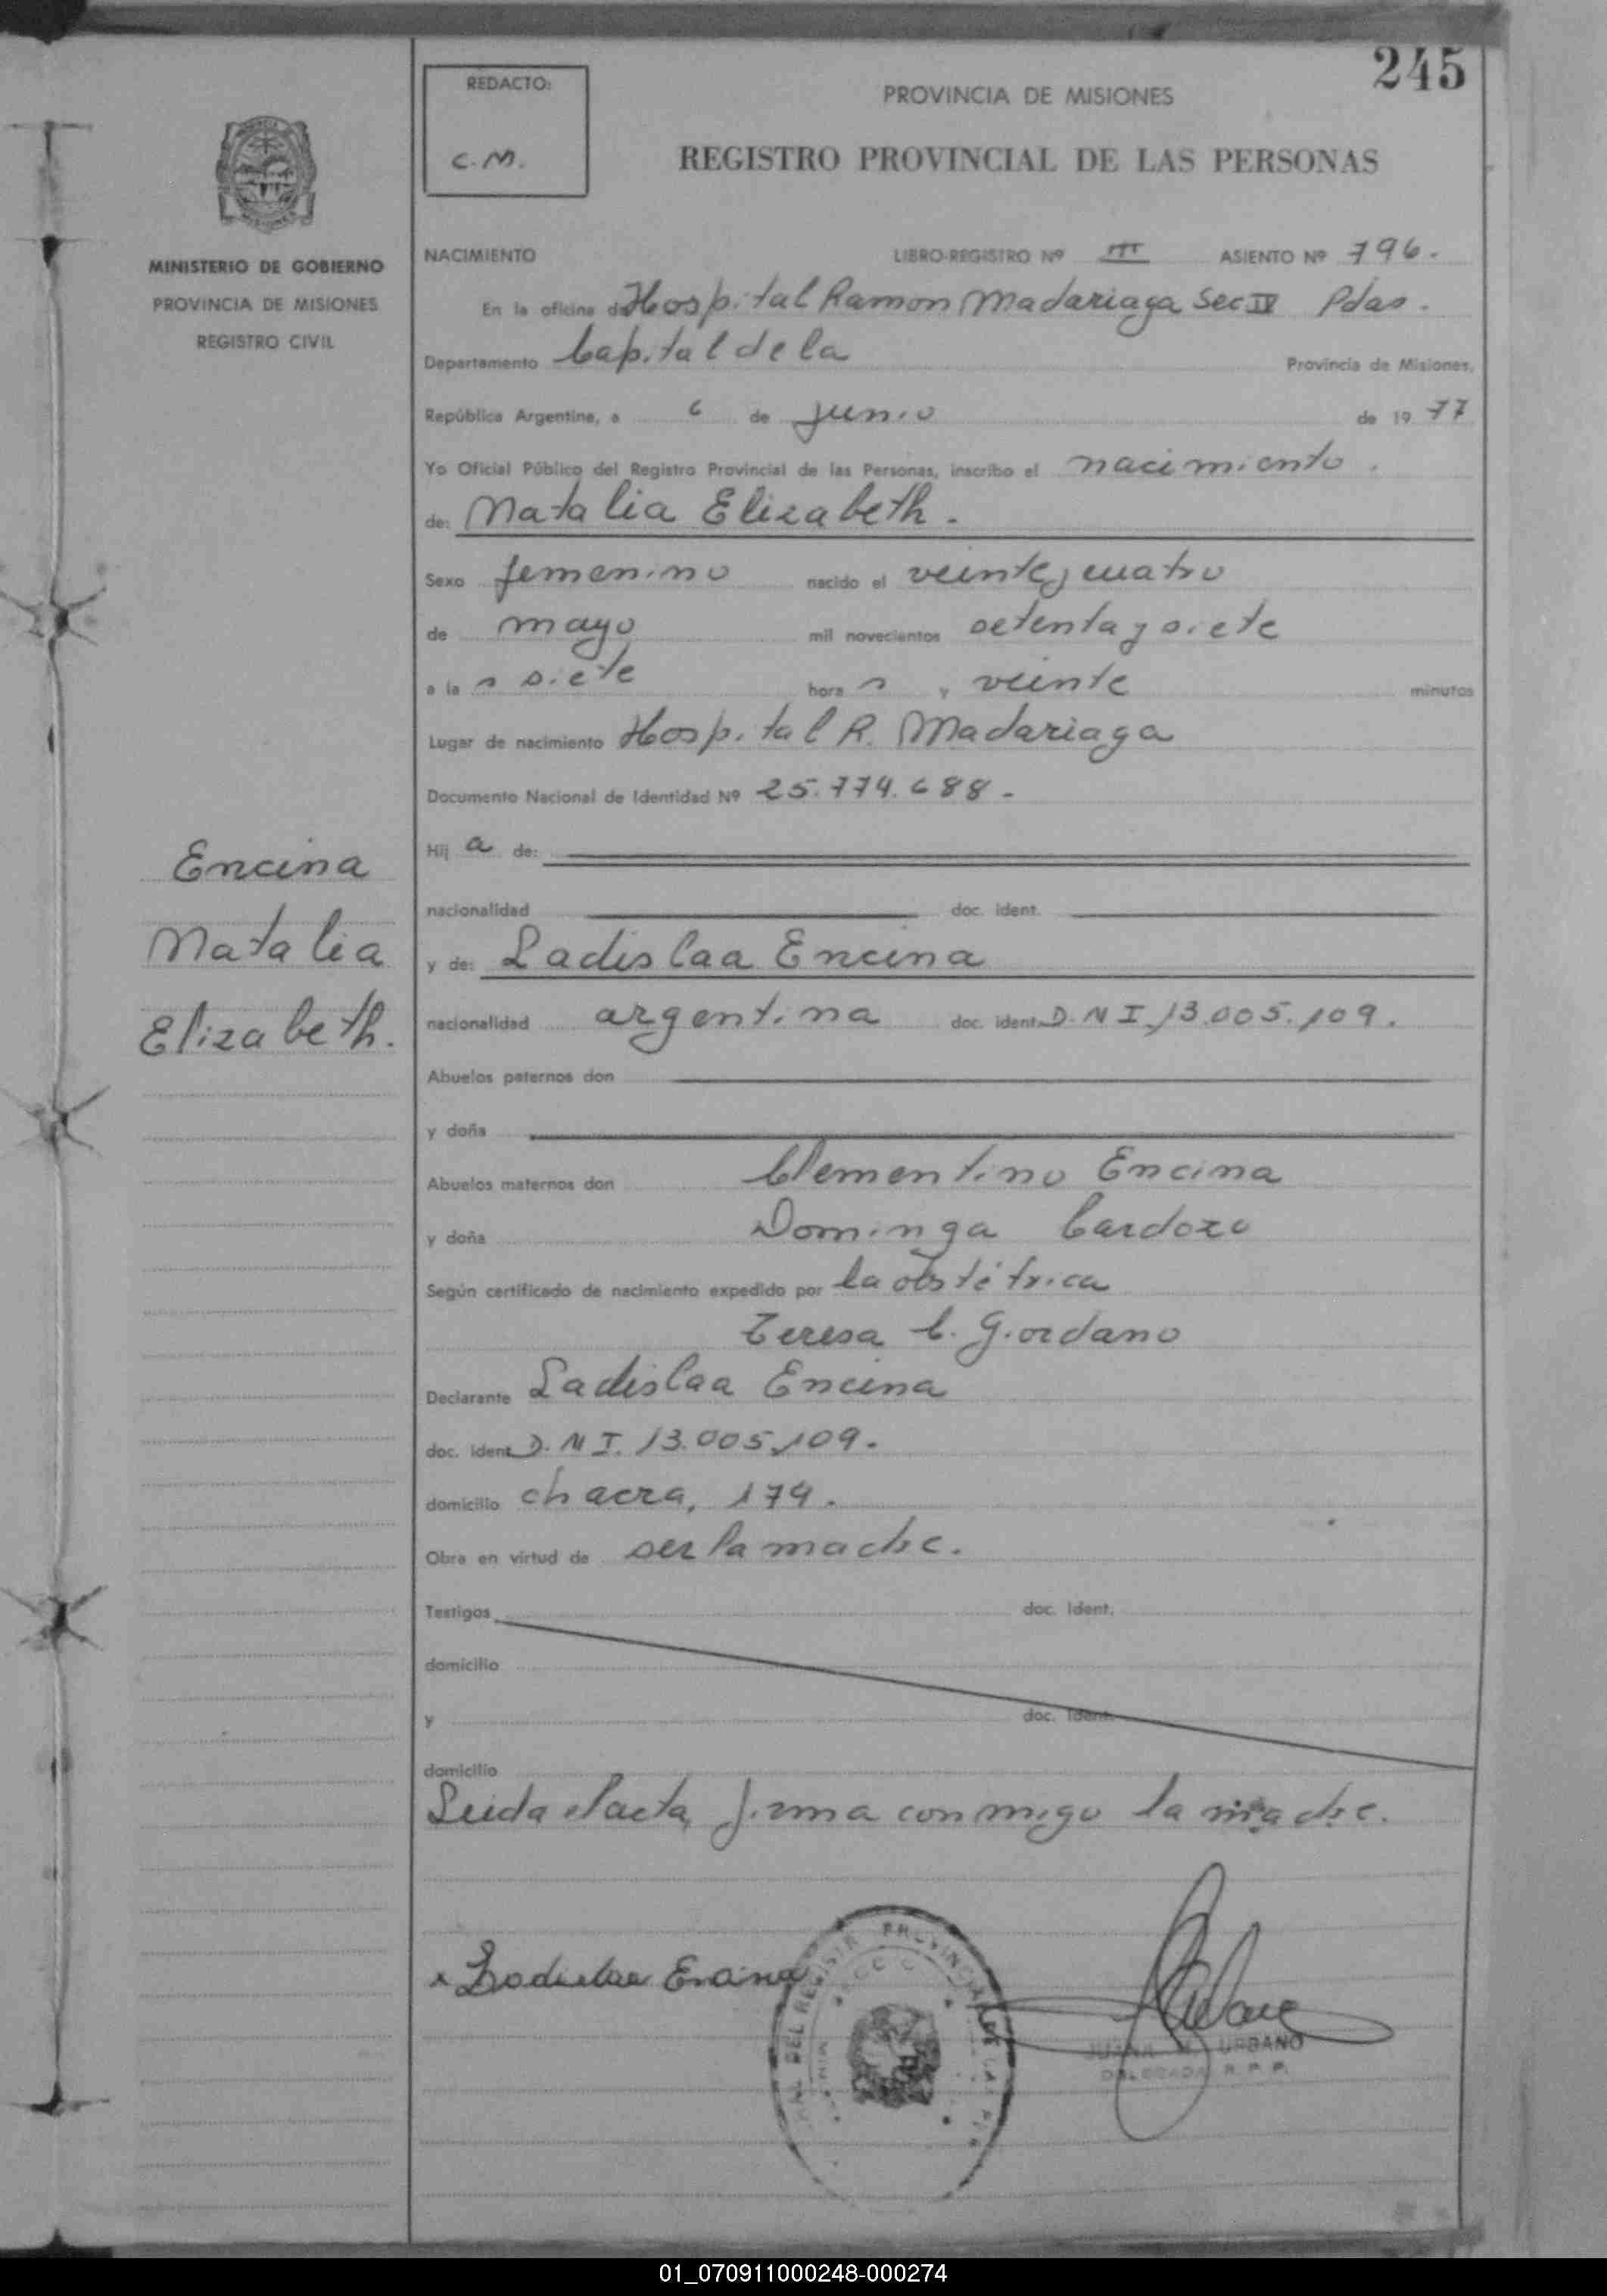 245
REDACTO:
C.M.
PROVINCIA DE MISIONES
REGISTRO PROVINCIAL DE LAS PERSONAS
MINISTERIO DE GOBIERNO
PROVINCIA DE MISIONES
REGISTRO CIVIL
NACIMIENTO LIBRO-REGISTRO Nº III ASIENTO Nº 796.
En la oficina de Hospital Ramon Madariaga Sec IV Pdas.
Departamento Capital de la Provincia de Misiones,
República Argentina, a 6 de junio de 19 77
Yo Oficial Público del Registro Provincial de las Personas, inscribo el nacimiento.
de: Natalia Elizabeth.
Sexo femenino nacido el veinte y cuatro
de mayo mil novecientos setenta y siete
a la s siete hora s y veinte minutos
Lugar de nacimiento Hospital R. Madariaga
Documento Nacional de Identidad Nº 25.774.688.-
Hij a de:
nacionalidad doc. ident.
y de: Ladislaa Encina
nacionalidad argentina doc. ident. D.N I. 13.005.109.
Abuelos paternos don
y doña
Abuelos maternos don Clementino Encina
y doña Dominga Cardozo
Según certificado de nacimiento expedido por la obstétrica
Teresa C. Giordano
Declarante Ladislaa Encina
doc. ident. D. N I. 13.005.109.
domicilio chacra, 179.
Obra en virtud de ser la madre.
Testigos doc. ident.
domicilio
y doc. ident.
domicilio
Leida el acta, firma conmigo la madre.
Encina
Natalia
Elizabeth.
x Ladislaa Encina
JUANA URBANO
DELEGADA R. P. P.
01_070911000248-000274